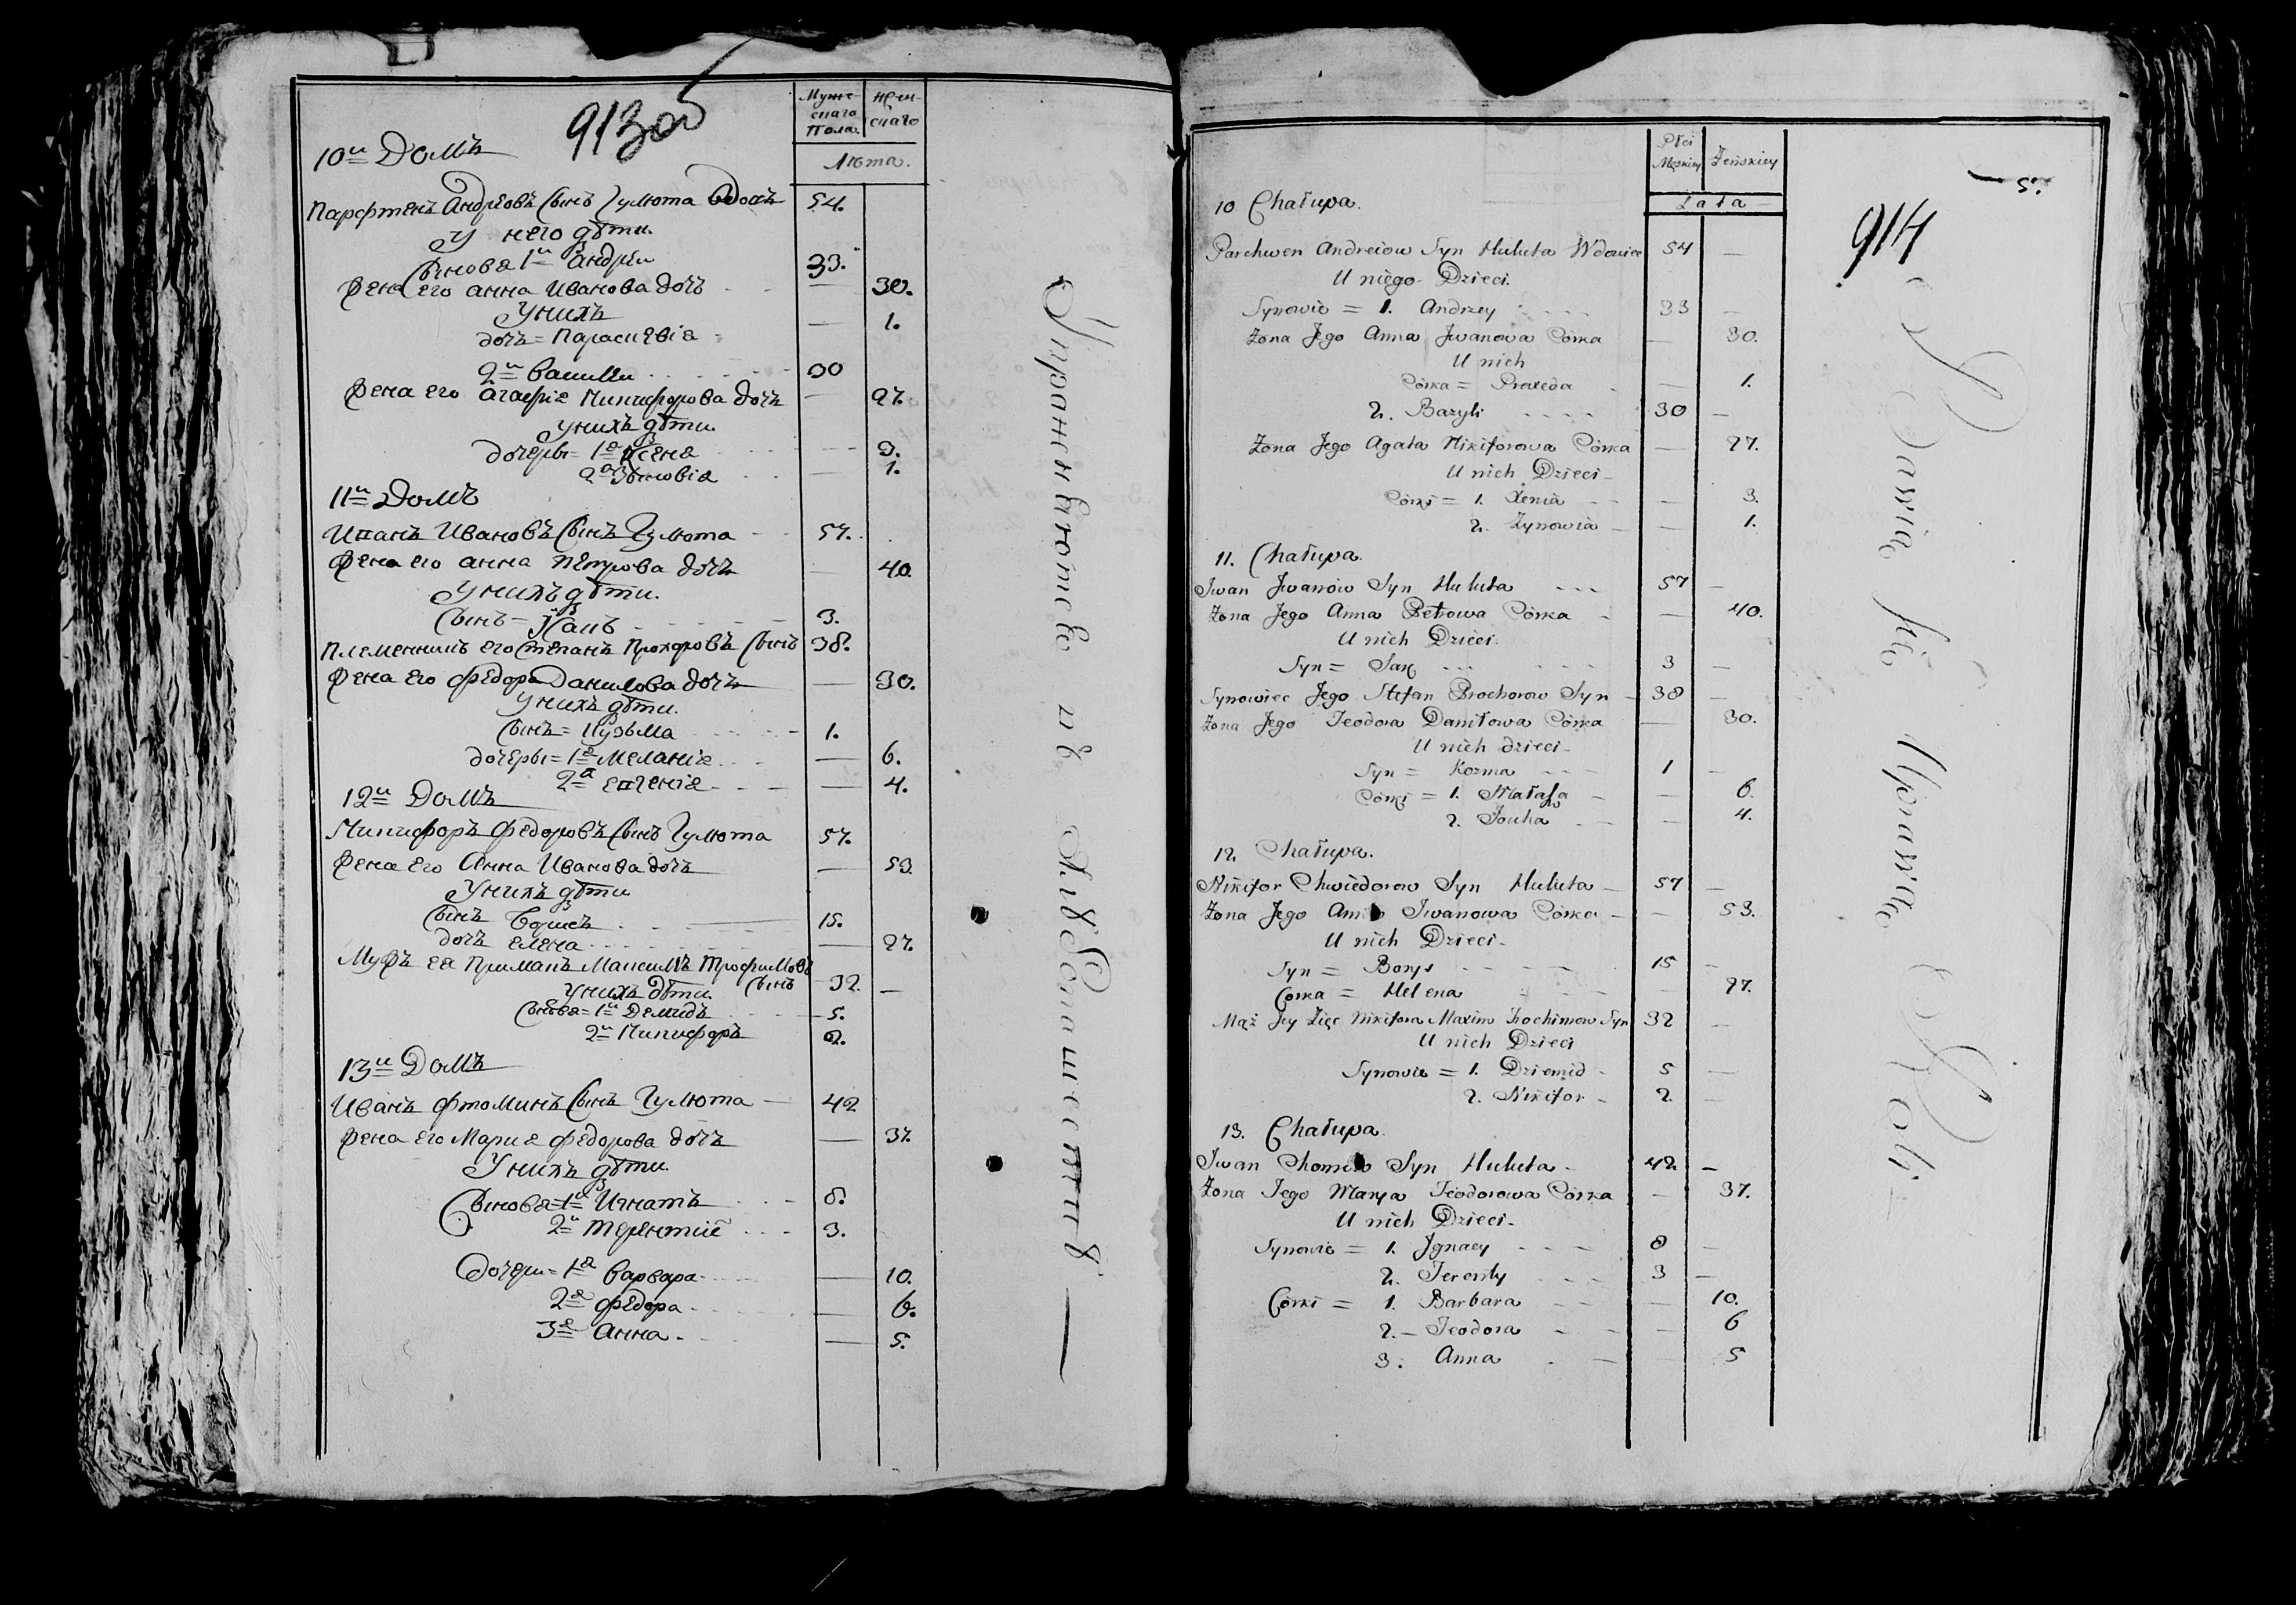 913 об
Муже-
скаго
Пола.
Жен-
скаго
Лѣта.
10й Домъ
Парфтенъ Андрѣовъ Сынъ Гулюта Вдовъ 54.
У него дѣти.
Сыновя 1й Андрѣй 33.
Жена его Анна Иванова дочъ — 30.
У нихъ
дочъ = Параскевiя — 1.
2й Василiй 30
Жена его Агафiя Никифорова дочъ — 27.
у нихъ дѣти.
дочеры = 1я Ксеня — 3.
2я Зѣновiя — 1.
11й Домъ
Иванъ Ивановъ Сынъ Гулюта 57.
Жена его Анна Петрова дочъ — 40.
У нихъ дѣти.
Сынъ = Исакъ 3.
Племенникъ его Степанъ Прохоровъ Сынъ 38.
Жена его Федора Данилова дочъ — 30.
У нихъ дѣти.
Сынъ = Кузьма 1.
дочеры = 1я Меланiя — 6.
2я — 4.
12й Домъ
Никифоръ Федоровъ Сынъ Гулюта 57.
Жена его Анна Иванова дочъ — 53.
У нихъ дѣти
Сынъ Борисъ 15.
дочъ Елена — 27.
Мужъ ея Примакъ Максимъ Трофимовъ
Сынъ 32. —
У нихъ дѣти.
Сыновя = 1й Демидъ 5.
2й Никифоръ 2.
13й Домъ
Иванъ Фтоминъ Сынъ Гулюта — 42
Жена его Марiя Федорова дочъ — 37.
У нихъ дѣти.
Сыновя = 1й Игнатъ 8.
2й Терентiй 3.
Дочери = 1я Варвара — 10.
2я Федора — 6.
3я Анна — 5.
Упражняютсѣ въ Хлѣбопашествѣ —
5.
914
Płci
Męskiey
Żeńskiey
Lata
10 Chałupa.
Parchwen Andreiow Syn Huluta Wdowiec 54 —
U niego Dzieci.
Synowie = 1. Andrzey 33 —
Żona Jego Anna Jwanowa Córka — 30.
U nich
Córka = Praxeda — 1.
2. Bazyli 30 —
Żona Jego Agata Nikiforowa Córka — 27.
U nich Dzieci
Córki = 1. Xenia — 3.
2. Zynowia — 1.
11. Chałupa.
Jwan Jwanow Syn Huluta 57 —
Żona Jego Anna Petrowa Córka — 40.
U nich Dzieci.
Syn = Sak 3 —
Synowiec Jego Stefan Prochorow Syn 38 —
Żona Jego Teodora Daniłowa Córka — 30.
U nich dzieci
Syn = Kozma 1 —
Córki = 1. — 6.
2. Jouha — 4.
12. Chałupa.
Nikifor Chwiedorow Syn Huluta 57 —
Żona Jego Anna Jwanowa Córka — 53.
U nich Dzieci.
Syn = Borys 15 —
Corka = Helena — 27.
Mąż Jey Zięć Nikifora Maxim Trochimow Syn 32 —
U nich Dzieci
Synowie = 1. Dziemid 5 —
2. Nikifor 2. —
13. Chałupa.
Jwan Chomin Syn Huluta 42 —
Żona Jego Marya Teodorowa Córka — 37.
U nich Dzieci.
Synowie = 1. Jgnacy 8 —
2. Terenty 3 —
Córki = 1. Barbara — 10.
2. Teodora — 6
3. Anna — 5
Bawią się Uprawą Roli